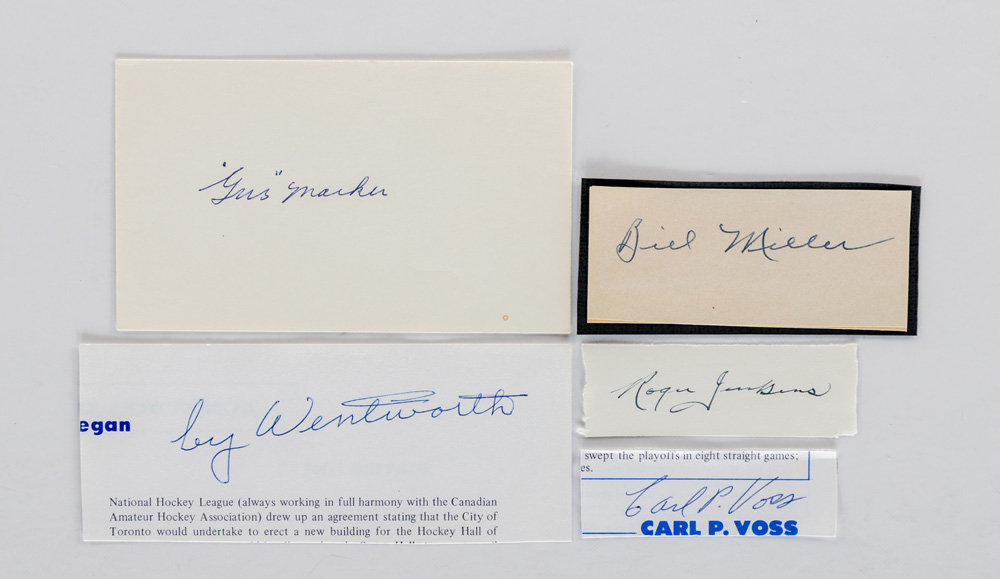 "Gus" Marker
Bill Miller
egan
by Wentworth
National Hockey League (always working in full harmony with the Canadian
Amateur Hockey Association) drew up an agreement stating that the City of
Toronto would undertake to erect a new building for the Hockey Hall of
Roger Jenkins
swept the playoffs in eight straight games;
es.
Carl P. Voss
CARL P. VOSS